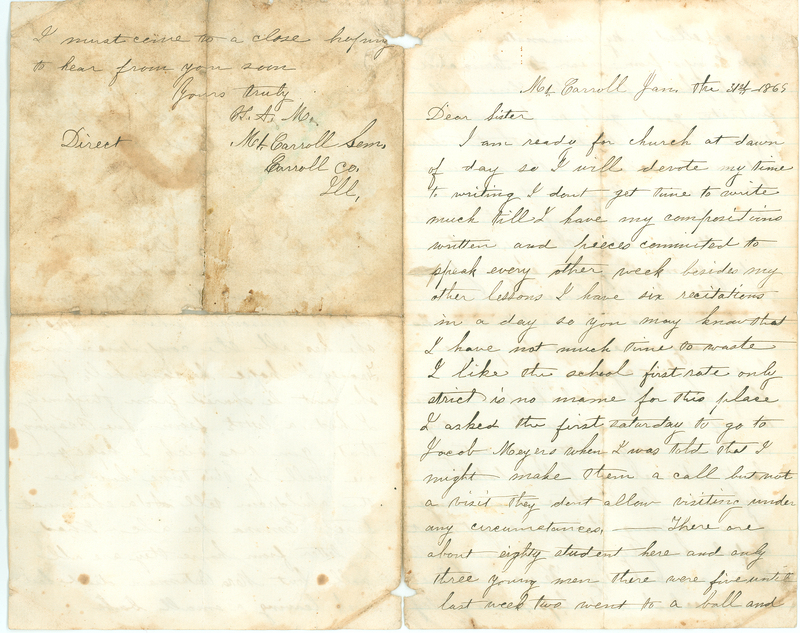 Mt. Carroll Jan. the 31st 1865
Dear Sister
I am ready for church at dawn
of day so I will devote my time
to writing I dont get time to write
much till I have my compositions
written and pieces commited to
speak every other week besides my
other lessons I have six recitations
in a day so you may know that
I have not much time to waste
I like the school first rate only
strict is no name for this place
I asked the first saturday to go to
Jacob Meyers when I was told that I
might make them a call but not
a visit they dont allow visiting under
any circumstances. — There are
about eighty student here and only
three young men there were five until
last week two went to a ball and
I must come to a close hoping
to hear from you soon
Yours truly
H. A. M.
Direct Mt. Carroll Sem.
Carroll co.
Ill,